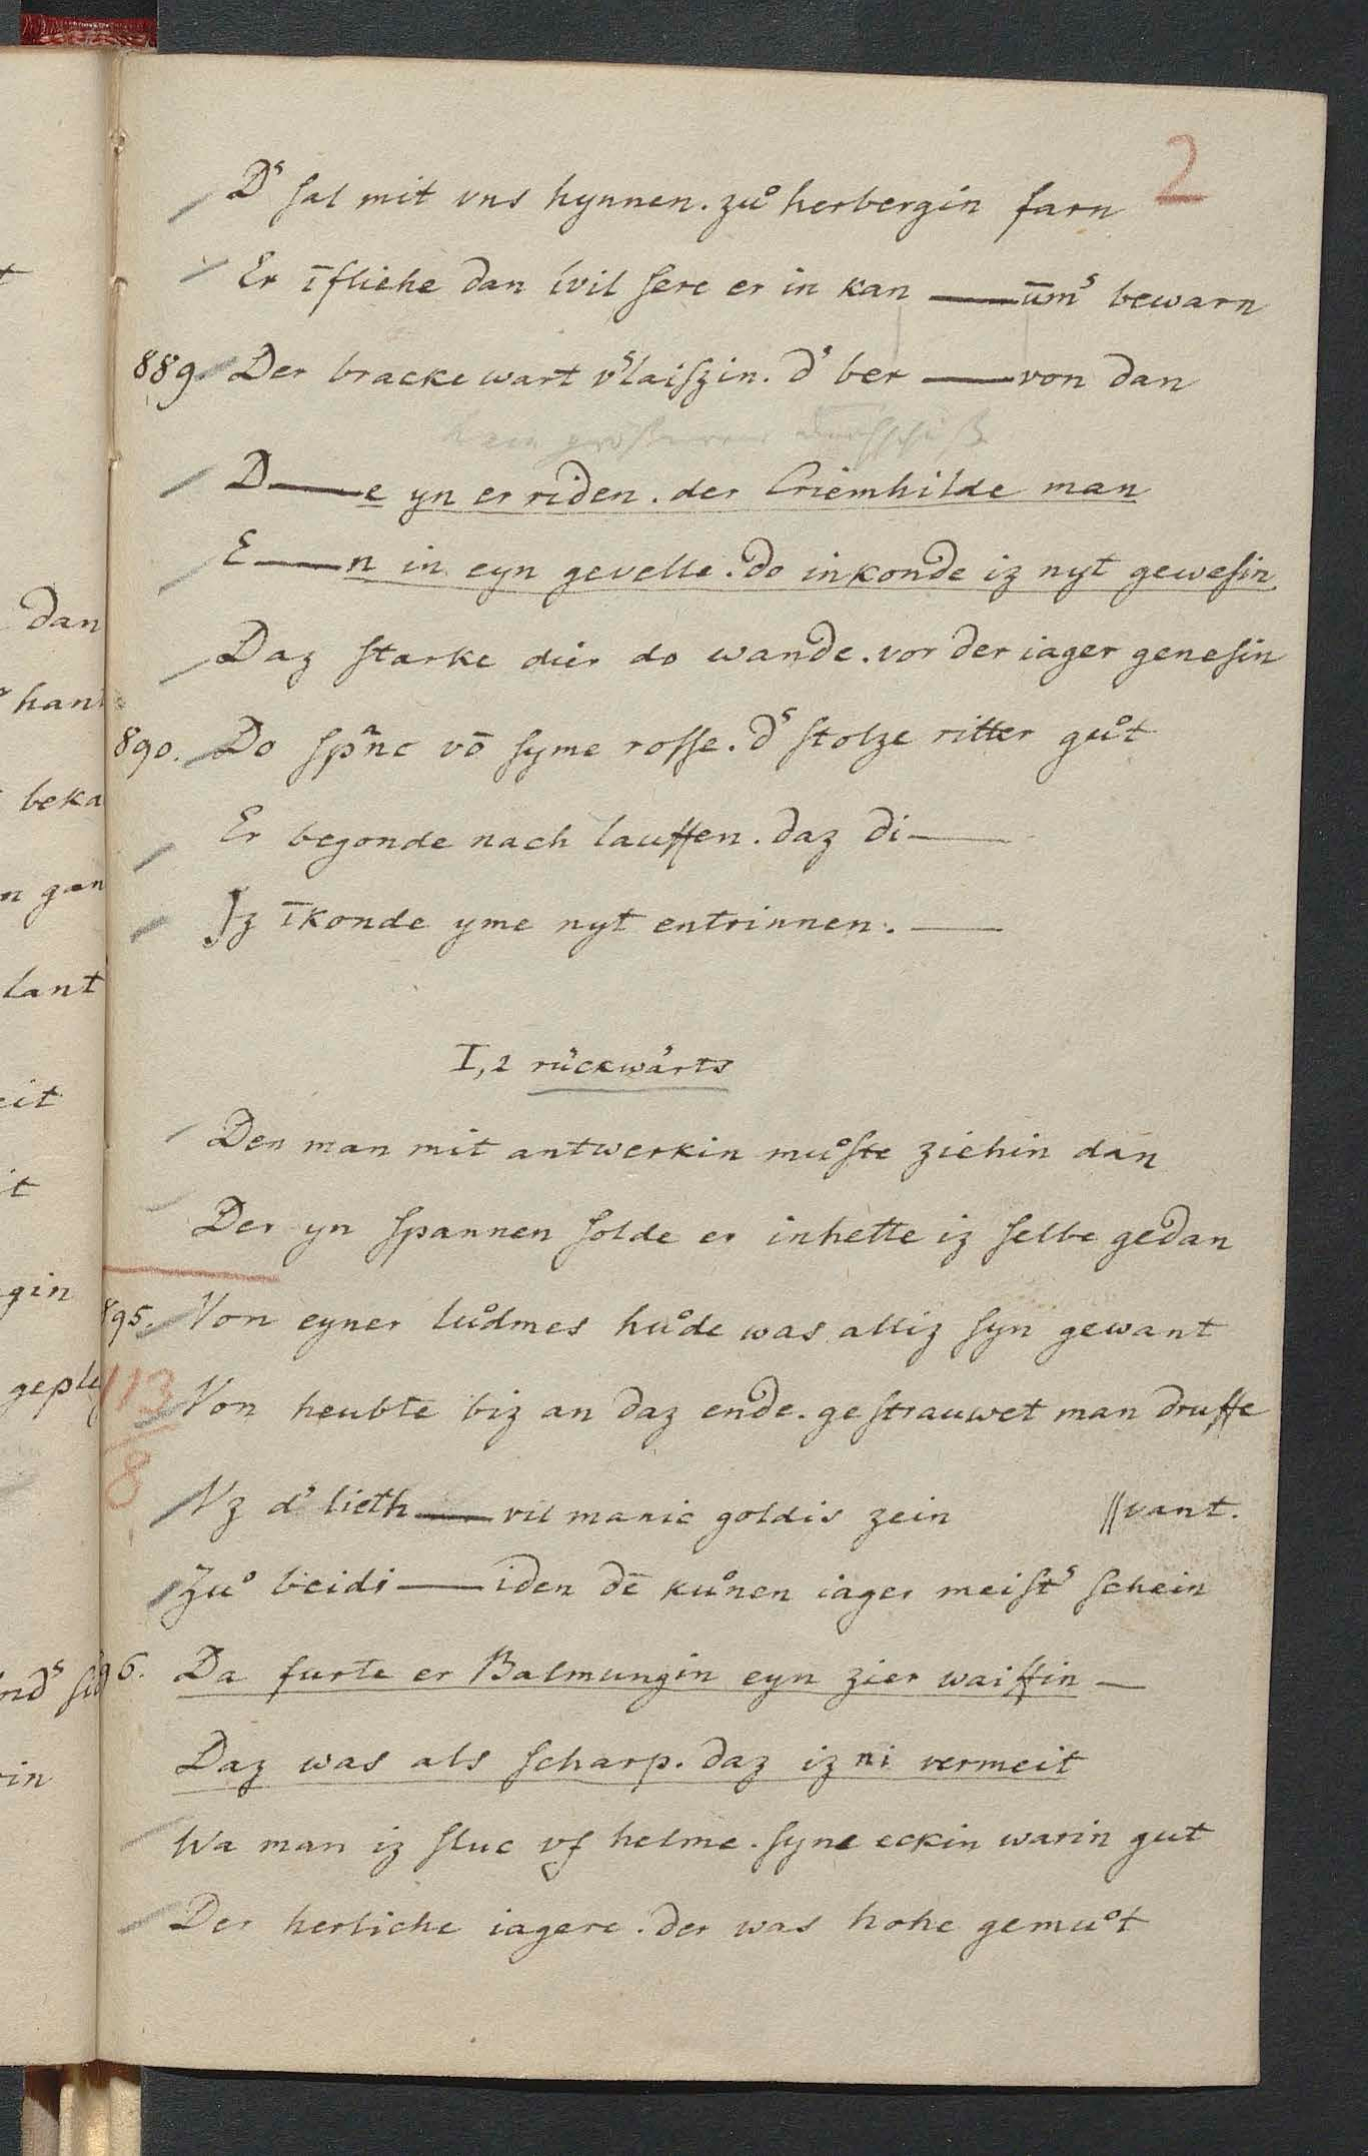 2
Dˢ ſal mit vns hynnen. zuͦ herbergin farn
Er īfliehe dan wil ſere er in kan —— ūmˢ bewarn
889. Der bracke wart vˢlaiſzin. dˢ ber —— von dan
kein größerer
D——e yn er riden. der Criemhilde man
E——n in eyn gevelle. do inkonde iz nyt geweſin
Daz ſtarke dier do wande. vor der iager geneſin
890. Do ſpᵃnc vō ſyme roſſe. dˢ ſtolze ritter guͦt
Er begonde nach lauffen. daz di——
Jz īkonde yme nyt entrinnen. ——
I, 2 rückwärts
Den man mit antwerkin muͦſte ziehin dan
Der yn ſpannen ſolde er inhette iz ſelbe gedan
895. Von eyner luͦdmes huͦde was alliz ſyn gewant
113
8
Von heubte biz an daz ende. geſtrauwet man druffe
Vz dˢ lieth—— vil manic goldis zein ||vant.
Zuͦ beidi——iden dē kuͦnen iager meiſtˢ ſchein
96. Da furte er Balmungin eyn zier waiffin —
Daz was als ſcharp. daz iz ni vermeit
Wa man iz ſluc vf helme. ſyne eckin warin gut
Der herliche iagere. der was hohe gemuͦt
dan
han
beka
n gan
lant
eit
it
gin
geple
ndˢ
in